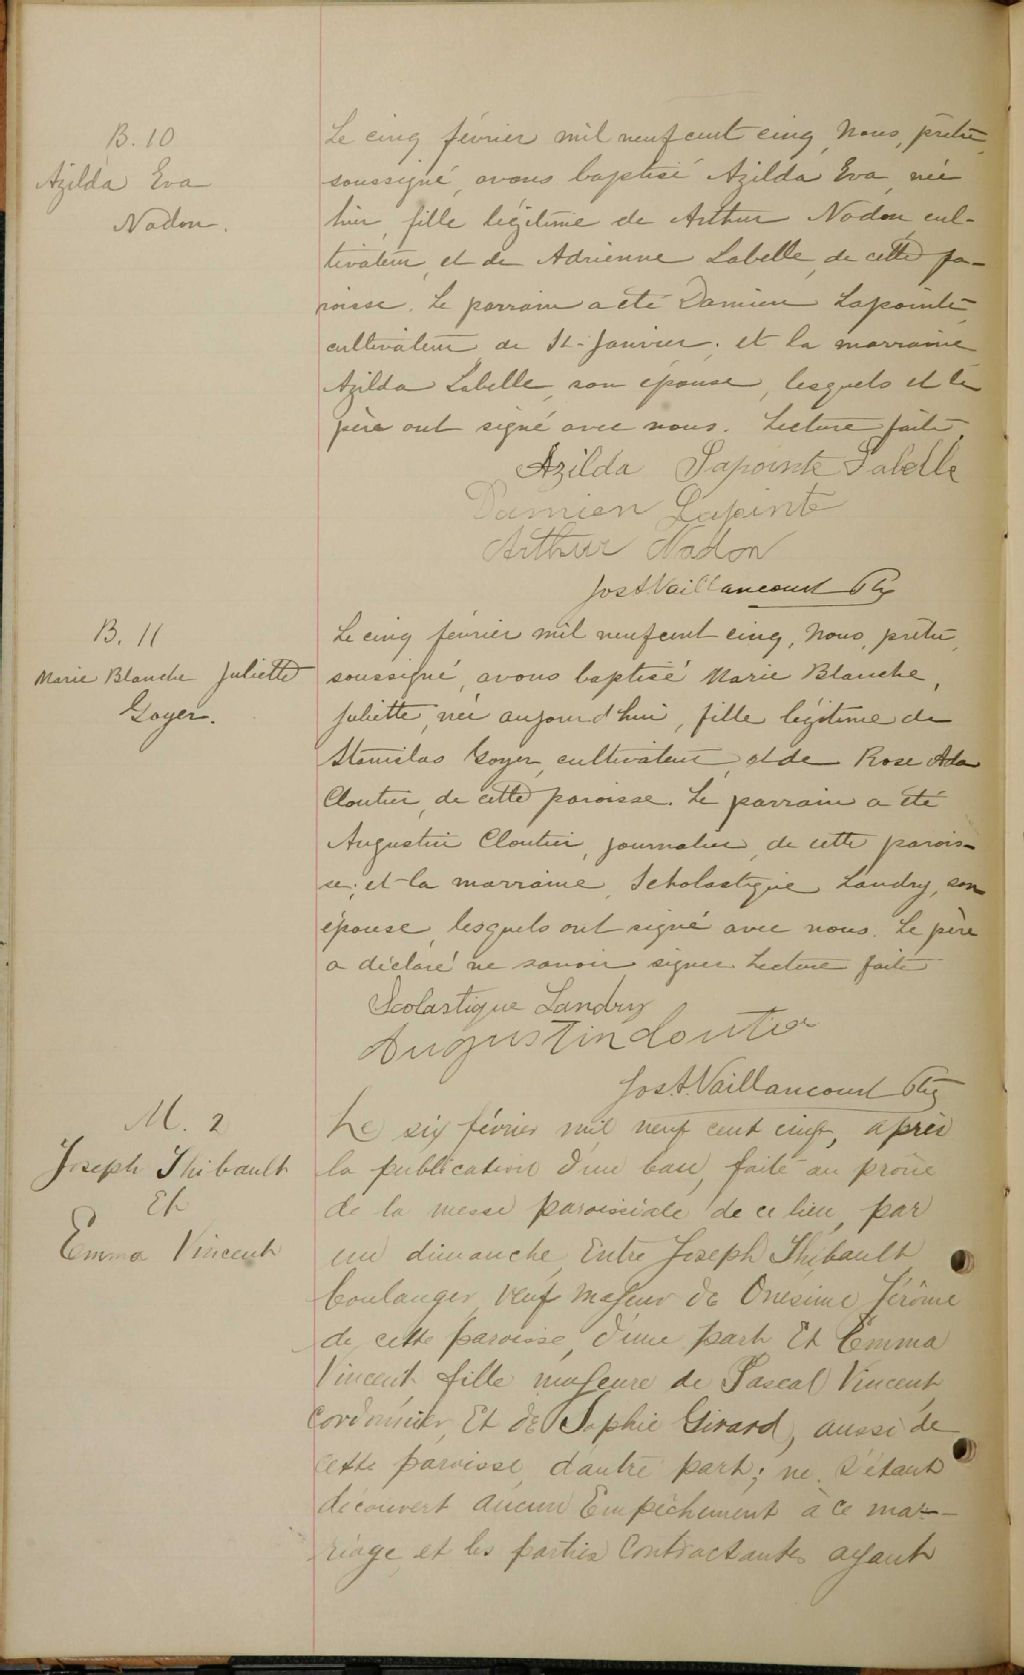 B. 10
Azilda Eva
Nadon.
Le cinq février mil neuf cent cinq, Nous, prêtre,
soussigné, avons baptisé Azilda Eva, née
hier, fille légitime de Arthur Nadon, cul-
tivateur, et de Adrienne Labelle, de cette pa-
roisse. Le parrain a été Damien Lapointe,
cultivateur, de St-Janvier; et la marraine
Azilda Labelle, son épouse, lesquels et le
père ont signé avec nous. Lecture faite.
Azilda Lapointe Labelle
Damien Lapointe
Arthur Nadon
Jos A. Vaillancourt Ptre
B. 11
Marie Blanche Juliette
Goyer.
Le cinq février mil neuf cent cinq, Nous, prêtre,
soussigné, avons baptisé Marie Blanche,
Juliette, née aujourd'hui, fille légitime de
Stanislas Goyer, cultivateur, et de Rose Ada
Cloutier, de cette paroisse. Le parrain a été
Augustin Cloutier, journalier, de cette parois-
se; et la marraine, Scholastique Landry, son
épouse, lesquels ont signé avec nous. Le père
a déclaré ne savoir signer. Lecture faite
Scolastique Landry
Augustin Cloutier
Jos. A. Vaillancourt Ptre
M. 2
Joseph Thibault
Et
Emma Vincent
Le six février mil neuf cent cinq, après
la publication d'un ban, faite au prône
de la messe paroissiale de ce lieu, par
un dimanche, Entre Joseph Thibault
boulanger, veuf majeur de Onésime Jérôme
de cette paroisse, d'une part Et Emma
Vincent, fille majeure de Pascal Vincent,
Cordonnier, Et de Sophie Girard, aussi de
cette paroisse, d'autre part; ne s'étant
découvert aucun Empêchement à ce ma-
riage, et les parties Contractantes ayant